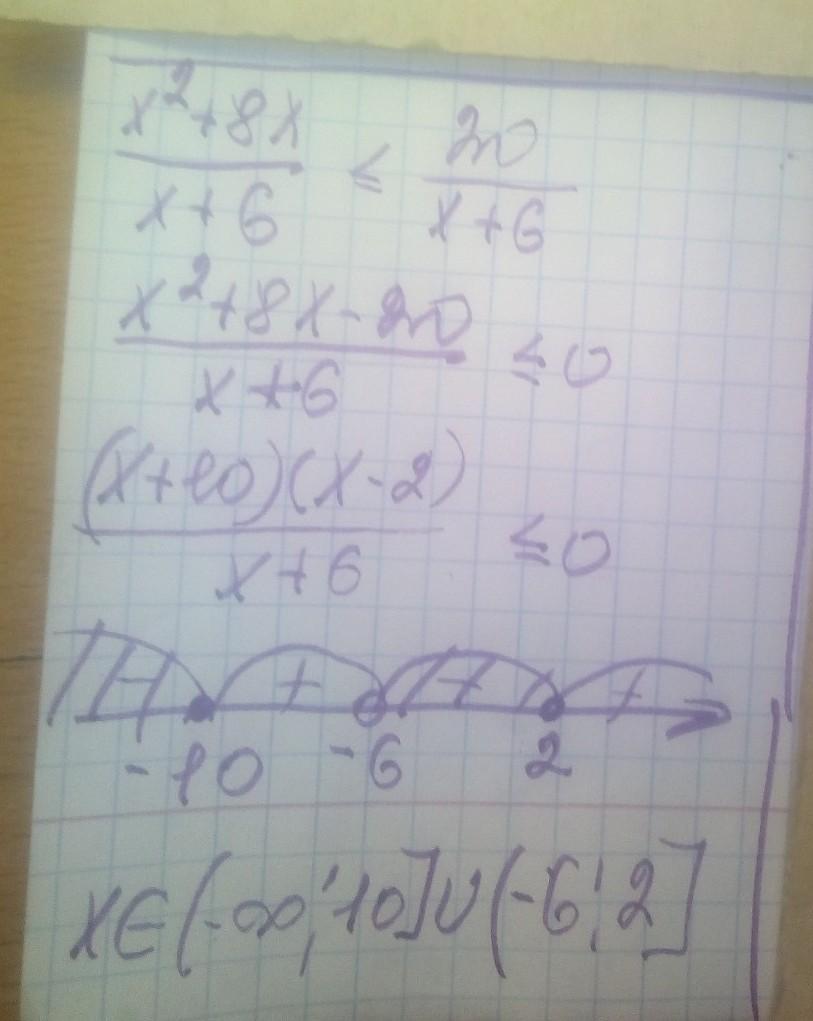 x²+8x / x+6 ≤ 20 / x+6
x²+8x-20 / x+6 ≤0
(x+10)(x-2) / x+6 ≤0
- + - +
-10 -6 2
x∈(-∞;10]∪(-6;2]